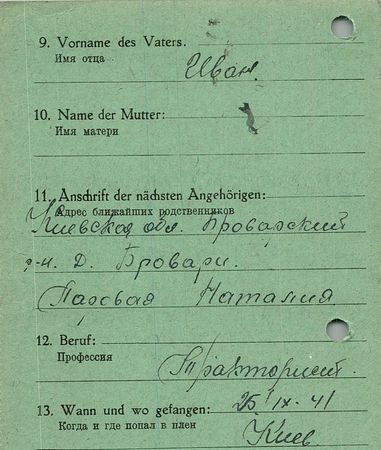 9. Vorname des Vaters.
Имя отца
Иван.
10. Name der Mutter:
Имя матери
11. Anschrift der nächsten Angehörigen:
Адрес ближайших родственников
Киевская обл. Броварский
р-н. Д. Бровари.
Наталия
12. Beruf:
Профессия
Тракторист.
13. Wann und wo gefangen: 25/IX-41
Когда и где попал в плен
Киев